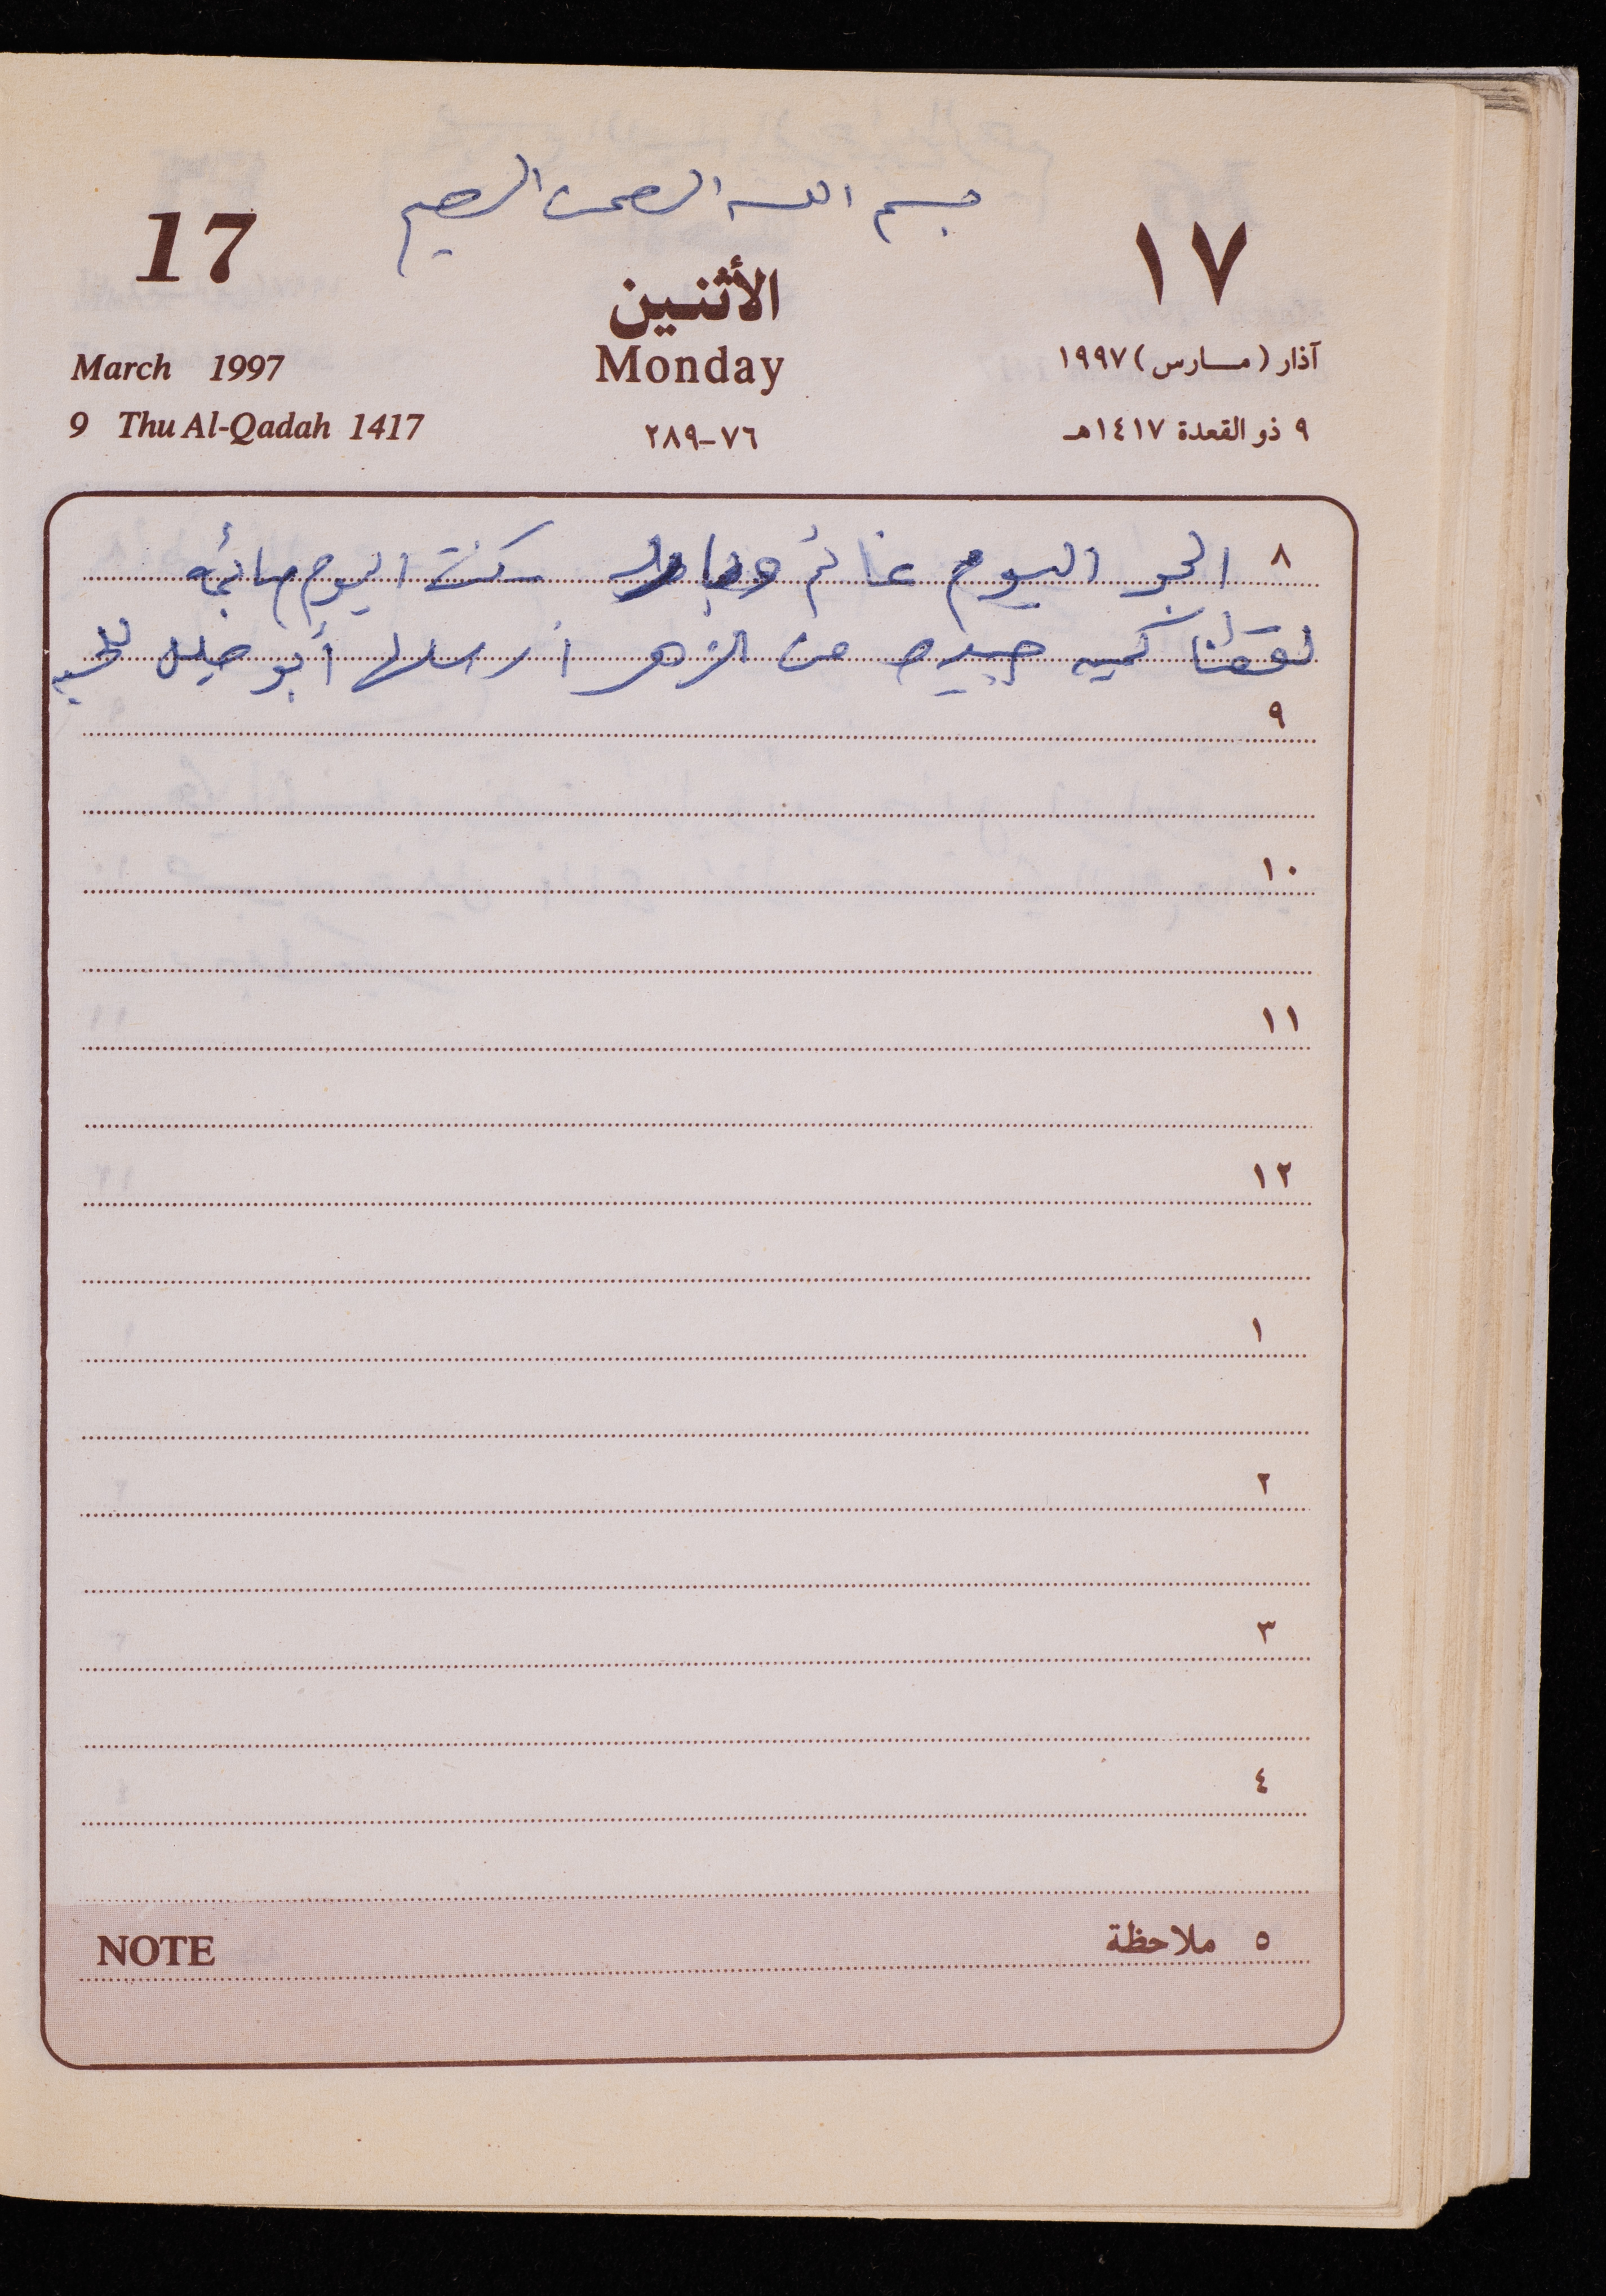 بسم الله الرحمن الرحيم
17
١٧
الأثنين
Monday
March 1997
آذار (مــارس) ١٩٩٧
9 Thu Al-Qadah 1417
٧٦-٢٨٩
٩ ذو القعدة ١٤١٧هـ
٨ الجو اليوم غائم وبارد كنت اليوم صائمه
لقطنا كميه جيده من الزهر أرسلها أبو خليل
٩
١٠
١١
١٢
١
٢
٣
٤
NOTE
٥ ملاحظة